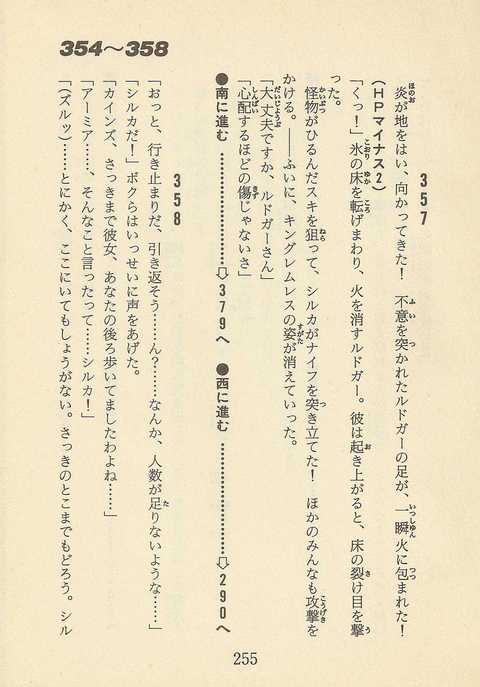 354〜358
357
炎が地をはい、向かってきた！　不意を突かれたルドガーの足が、一瞬火に包まれた！
（HPマイナス2）
「くっ！」氷の床を転げまわり、火を消すルドガー。彼は起き上がると、床の裂け目を撃
った。
怪物がひるんだスキを狙って、シルカがナイフを突き立てた！　ほかのみんなも攻撃を
かける。――ふいに、キングレムレスの姿が消えていった。
「大丈夫ですか、ルドガーさん」
「心配するほどの傷じゃないさ」
●南に進む……………………⇨379へ　●西に進む……………………⇨290へ
358
「おっと、行き止まりだ、引き返そう……ん？……なんか、人数が足りないような……」
「シルカだ！」ボクらはいっせいに声をあげた。
「カインズ、さっきまで彼女、あなたの後ろ歩いてましたわよね……」
「アーミア……、そんなこと言ったって……シルカ！」
「（ズルッ）……とにかく、ここにいてもしょうがない。さっきのとこまでもどろう。シル
255